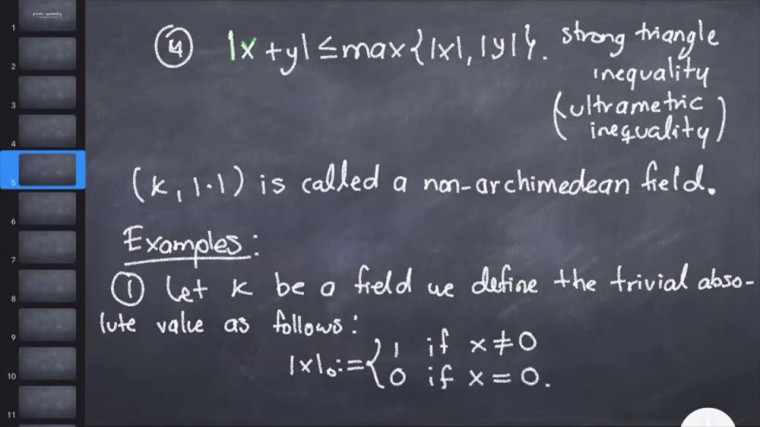 ④ |x+y| ≤ max{|x|, |y|}. strong triangle
inequality
(ultrametric
inequality)
(k, |·|) is called a non-archimedean field.
Examples:
① Let k be a field we define the trivial abso-
lute value as follows:
|x|₀ := { 1 if x ≠ 0
0 if x = 0.
1
2
3
4
5
6
7
8
9
10
11